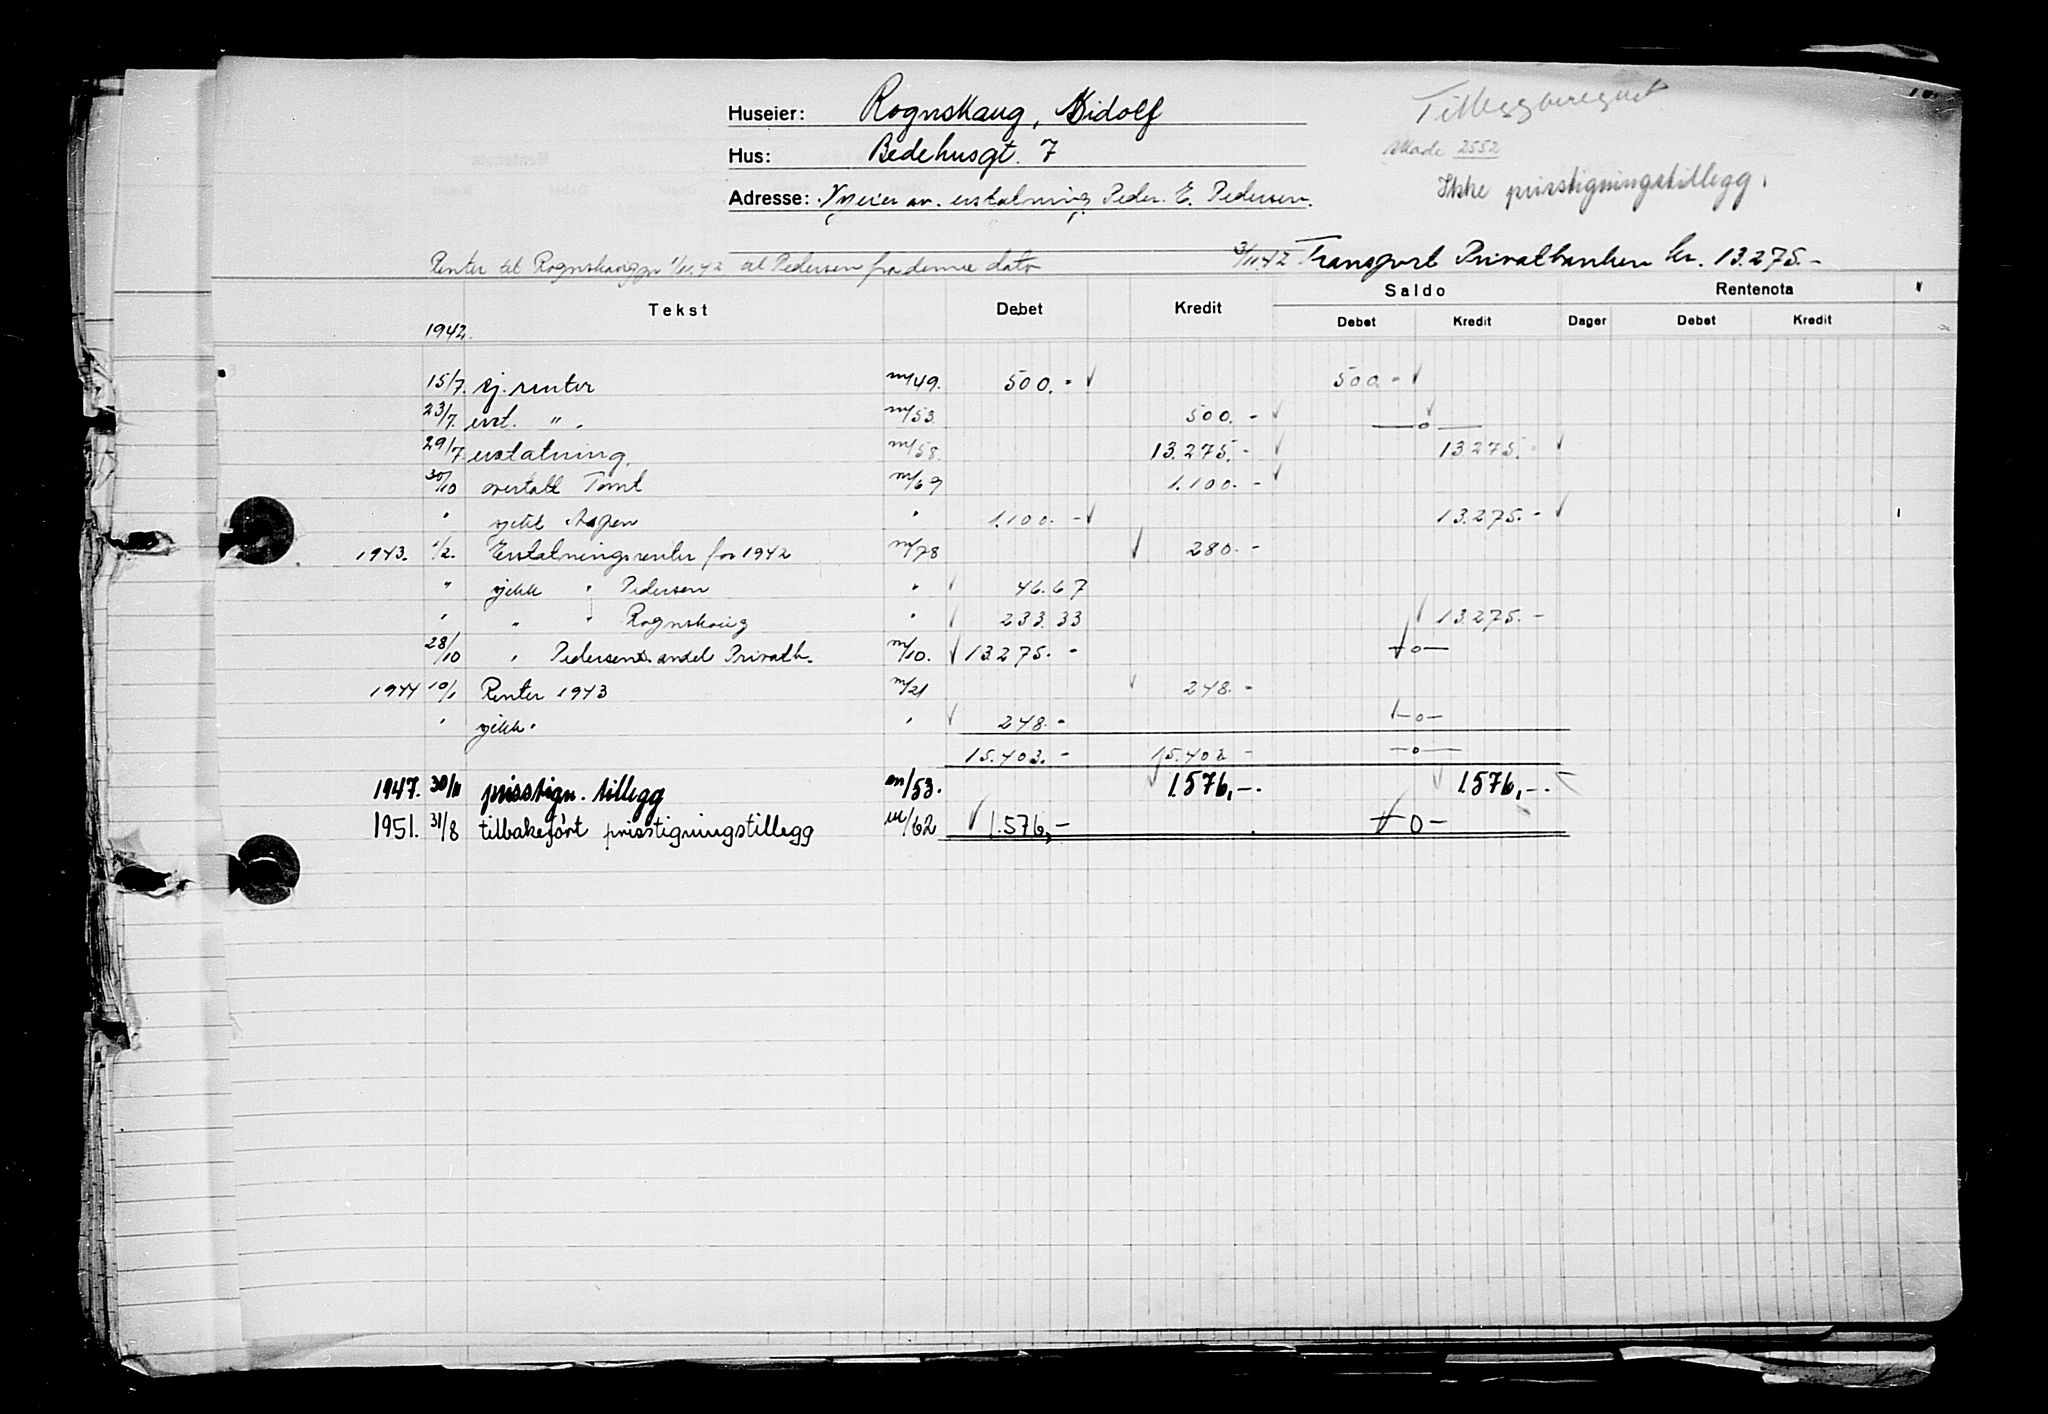 Huseier: Rognskaug, Midolf
Tilleggberegnet
Hus: Bedehusgt. 7
Skade 2552
Adresse: Meier av. erstatning Peder E. Pedersen.
Ikke prisstigningstillegg.
3/11.42 Transport Privatbanken kr. 13.275.-
Renter til Rognskaug pr 1/11.42 at Pedersen fra denne dato
Tekst Debet Kredit Saldo Rentenota
Debet Kredit Dager Debet Kredit
1942.
15/7. gj. renter m/49. 500.- 500.-
23/7. erst. " . m/53 500.- —o—
29/7. erstatning. m/58. 13.275.- 13.275.-
30/10 overtatt Tomt m/69 1.100.-
" gikk " 1.100.- 13.275.-
1943. 1/2. Erstatningsrenter for 1942 m/78 280.-
" gikk " Pedersen " 46.67
" " " Rognskaug " 233.33 13.275.-
28/10 " Pedersens andel Privatb. m/10. 13.275.- -o-
1944 10/1 Renter 1943 m/21 248.-
" gikk " " 248.- -o-
15.403.- 15.403.- -o-
1947. 30/11 prisstign. tillegg m/53. 1.576,-. 1.576,-.
1951. 31/8 tilbakeført prisstigningstillegg m/62 1.576,- -0-